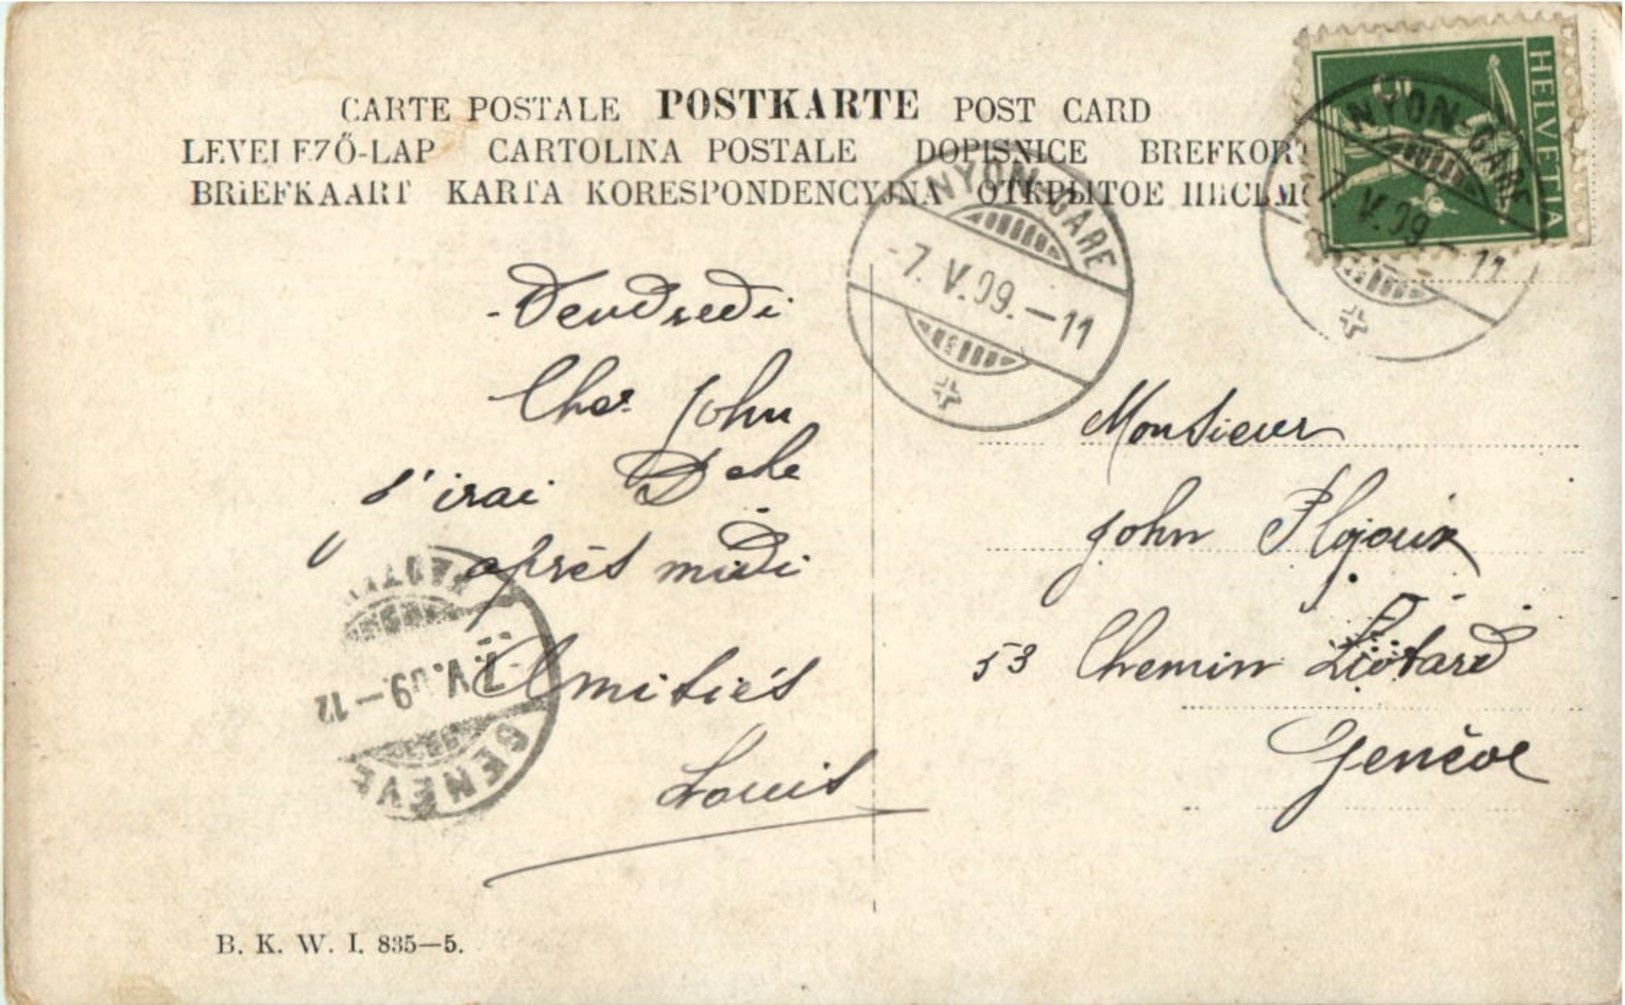 CARTE POSTALE POSTKARTE POST CARD
LEVELEZŐ-LAP CARTOLINA POSTALE DOPISNICE BREFKORT
BRIEFKAART KARTA KORESPONDENCYJNA ОТКРЫТОЕ ПИСЬМО
HELVETIA
NYON-GARE
7. V. 09. - 11
NYON-GARE
-7. V. 09. - 11
Vendredi
Cher John
J'irai Dche
après midi
Amitiés
Louis
-7. V. 09 - 12
GENÈVE
Monsieur
John
53 Chemin Liotard
Genève
B. K. W. I. 835-5.